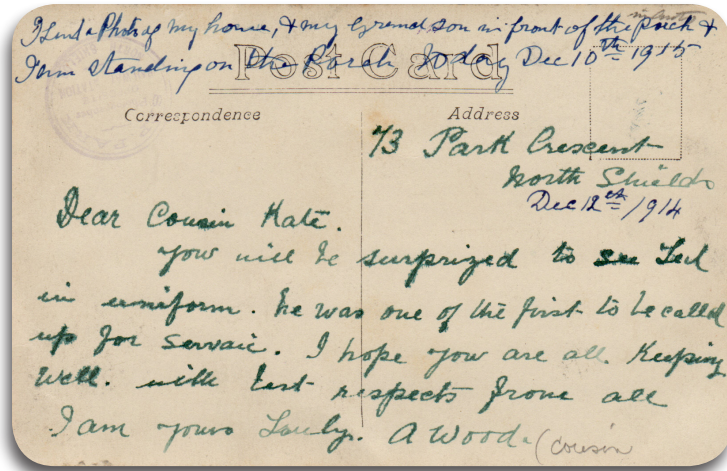 I Send a Photo of my house, & my Grandson in front of the Porch &
I am standing on the Porch today Dec 10th 1915
Post Card
Correspondence
Address
73 Park Crescent
North Shields
Dec 12 /1914
Dear Cousin Kate.
you will be surprized to see Ted
in uniform. he was one of the first to be called
up for servaic. I hope you are all Keeping
Well. with best respects frome all
I am yours Truly. A Wood (cousin